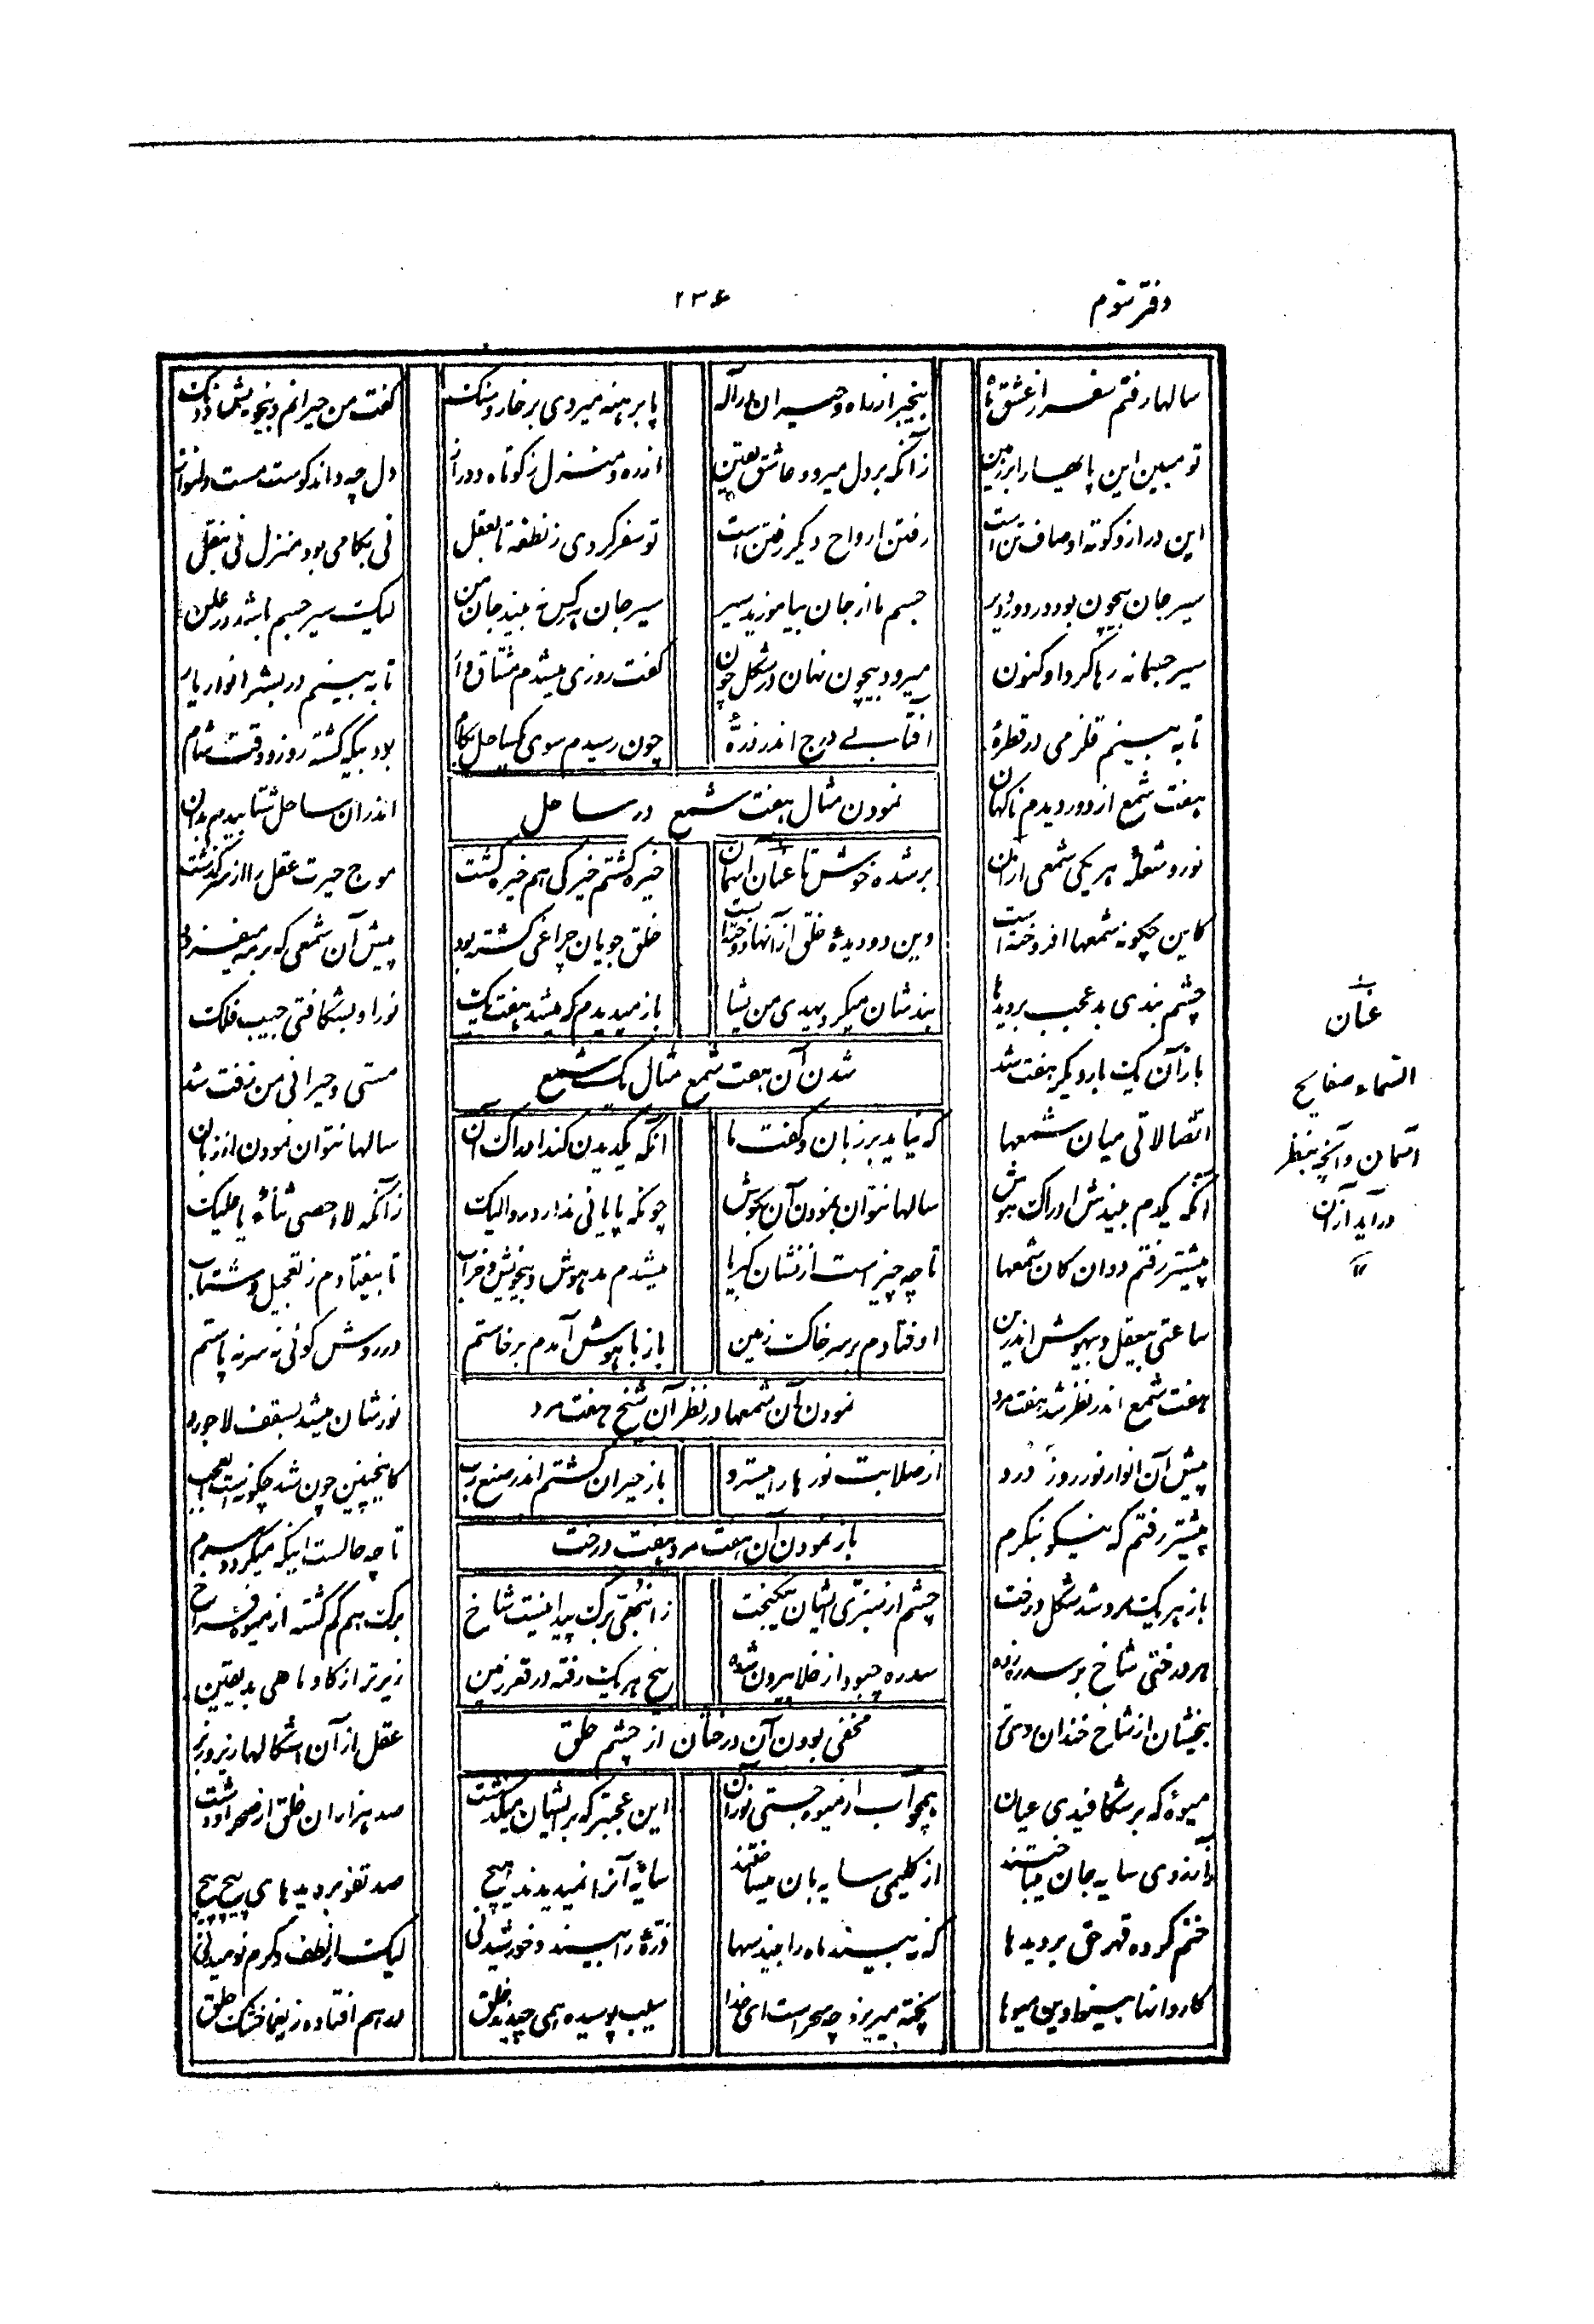 دفتر سوم
۲۳۶
سالها رفتم سفر از عشق ماه
بیخبر از راه و حیران در آله
پا برهنه میروی بر خار و سنگ
گفت من حیرانم و بیخویش و دنگ
تو مبین این پایها را بر زمین
زآنکه بر دل میرود عاشق یقین
از ره و منزل ز کوتاه و دراز
دل چه داند کوست مست دلنواز
این دراز و کوته اوصاف تن است
رفتن ارواح دیگر رفتن است
تو سفر کردی ز نطفه تا بعقل
نی بگامی بود منزل نی بنقل
سیر جان بیچون بود در دور و دیر
جسم ما از جان بیاموزید سیر
سیر جان هر کس نبیند جان من
لیک سیر جسم باشد در علن
سیر جسمانه رها کرد او کنون
میرود بیچون نهان در شکل چون
گفت روزی میشدم مشتاق وار
تا به بینم در بشر انوار یار
تا به بینم قلزمی در قطرهٔ
آفتابی درج اندر ذرهٔ
چون رسیدم سوی یکساحل بگام
بود بیگه گشته روز و وقت شام
نمودن مثال هفت شمع در ساحل
هفت شمع از دور دیدم ناگهان
اندران ساحل شتابیدم بدان
نور و شعلهٔ هر یکی شمعی از آن
بر شده خوش تا عنان آسمان
خیره گشتم خیرگی هم خیره گشت
موج حیرت عقل را از سر گذشت
کاین چگونه شمعها افروخته است
وین دو دیدهٔ خلق از آنها دوخته است
خلق جویان چراغی گشته بود
پیش آن شمعی که بر مه میفزود
چشم بندی بد عجب بر دیدها
بندشان میکرد یهدی من یشا
باز میدیدم که میشد هفت یک
نور او بشکافتی جیب فلک
شدن آن هفت شمع مثال یک شمع
باز آن یک بار دیگر هفت شد
مستی و حیرانی من زفت شد
اتصالاتی میان شمعها
که نیاید بر زبان و گفت ما
آنکه یکدیدن کند ادراک آن
سالها نتوان نمودن از زبان
آنکه یکدم بیندش ادراک هوش
سالها نتوان نمودن آن بگوش
چونکه پایانی ندارد رو الیک
زآنکه لا احصی ثناءً یا علیک
پیشتر رفتم دوان کان شمعها
تا چه چیز است از نشان کبریا
میشدم مدهوش و بیخویش و خراب
تا بیفتادم ز تعجیل و شتاب
ساعتی بیعقل و بیهوش اندرین
اوفتادم بر سر خاک زمین
باز با هوش آمدم برخاستم
در روش گوئی نه سر نه پاستم
نمودن آن شمعها در نظر آن شیخ هفت مرد
هفت شمع اندر نظر شد هفت مرد
نورشان میشد بسقف لاجورد
پیش آن انوار نور روز درد
از صلابت نورها را میسترد
باز حیران گشتم اندر صنع رب
کاینچنین چون شد چگونه است ای عجب
باز نمودن آن هفت مرد هفت درخت
پیشتر رفتم که نیکو بنگرم
تا چه حالست اینکه میگردد سرم
باز هر یک مرد شد شکل درخت
چشم از سبزی ایشان نیکبخت
ز انبهی برگ پیدا نیست شاخ
برگ هم گم گشته از میوه فراخ
هر درختی شاخ بر سدره زده
سدره چبود از خلا بیرون شده
بیخ هر یک رفته در قعر زمین
زیرتر از گاو و ماهی بد یقین
مخفی بودن آن درختان از چشم خلق
بیخشان از شاخ خندان روی تر
عقل از آن اشکالها زیر و زبر
میوهٔ که بر شکافیدی عیان
همچو آب از میوه جستی نور آن
این عجبتر که بر ایشان میگذشت
صد هزاران خلق از صحرا و دشت
ز آرزوی سایه جان میباختند
از گلیمی سایه بان میساختند
سایهٔ آنرا نمیدیدند هیچ
صد تفو بر دیدهای پیچ پیچ
ختم کرده قهر حق بر دیدها
که نه بیند ماه را بیند سها
ذرهٔ را بیند و خورشید نی
لیک از لطف و کرم نومید نی
کاروانها بینوا وین میوها
پخته میریزد چه سحر است ای خدا
سیب پوسیده همی چیدند خلق
در هم افتاده ز یغما خشک حلق
عنان
السماء صفایح
آسمان و آنچه بنظر
در آید از آن